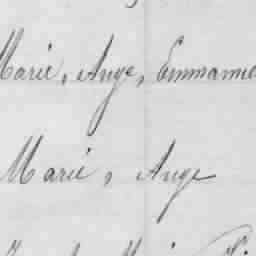 Marie, Ange, Emmanue
Marie, Ange